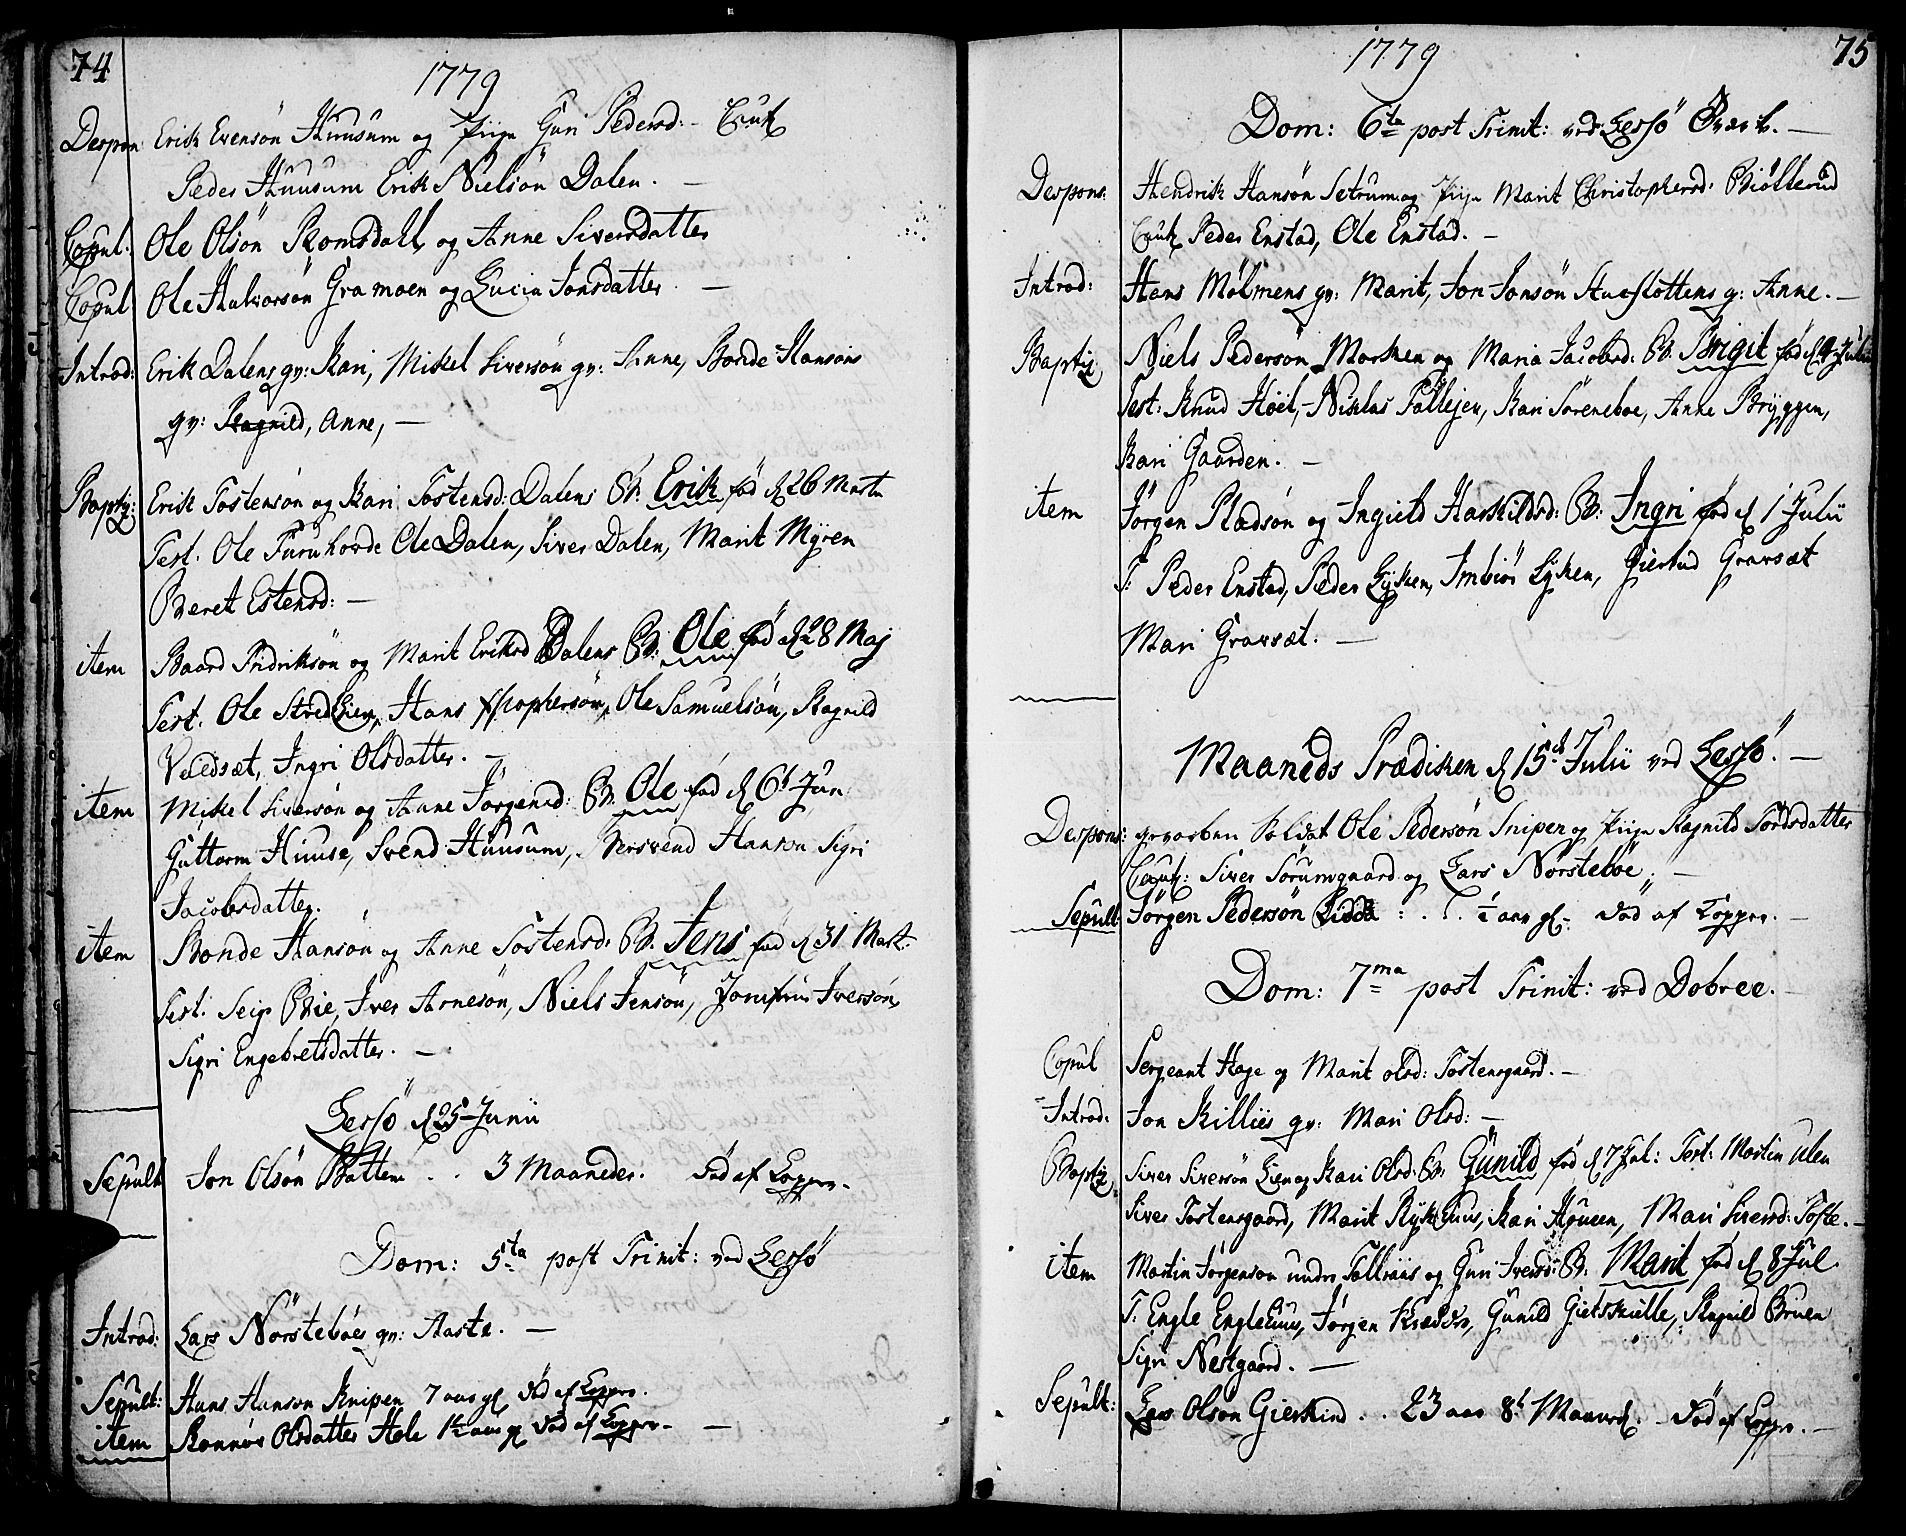 74
1779
Despon: Erik Evensön Huusum og Pige Guri Pedersd: - Caut
Peder Huusum Erik Nielsön Dalen. -
Copul: Ole Olsön Romsdahl og Anne Siversdatter
Copul Ole Halvorsön Gramoen og Lucia Jonsdatter. -
Introd: Erik Dalens gv: Kari, Mikel Siversön gv: Anne, Bonde Hansöns
gv: Ragnild, Anne, -
Baptiz: Erik Tostensön og Kari Tostensd: Dalens B: Erik fød d 26 Martii
Test. Ole Furuhovde Ole Dalen, Siver Dalen, Marit Myren
Beret Estensd: -
item Baard Fridriksön og Marit Eriksd Dalens B: Ole fød d 28 Maj
Test. Ole Hans Ole Samuelsön, Ragnild
Ingri Olsdatter. -
item Mikel Siversön og Anne Jörgensd: B. Ole fød d 6t Jun
Guttorm Huuse, Svend Huusum, Hanson Sigri
Jacobsdatter.
item Bonde Hansön og Anne Tostensd: B. Jens fød d 31 Mart.
Test. Seip Bie, Iver Arnesön, Niels Jensön, Iversön
Sigri Engebretsdatter. -
Lessö d 25 Junii
Sepult Jon Olsön Botten . . 3 Maaneder. død af Kopper.
Dom: 5ta post Trinit: ved Lessö
Introd: Lars Norsteböes gv: Aaste. -
Sepult: Hans Hanson Knipen 7 aar gl død af Kopper.
item Ronnöv Olsdatter Hole 1½ aar gl død af Kopper. -
75
1779
Dom: 6ta post Trinit: ved Lessö Værk. -
Despons: Hendrik Hansön Setrum og Pige Marit Christophersd: Biölkerud
Caut Peder Enstad, Ole Enstad. -
Introd: Hans Mölmens gv: Marit, Jon Jonsön g: Anne. -
Baptiz, Niels Pedersön Morken og Maria Jacobsd: B. Brigit fød d 9 Julii
Test: Knud Höel, Niklas Kari Söreneboe, Anne Bryggen,
Kari Gaarden. -
item Jörgen Pladsön og Ingield Haskildsd: B: Ingri fød d 1 Julii
T: Peder Enstad, Peder Lyken, Imbiör Lyken, Giertrud Gravsæt
Mari Gravsæt. -
Maaneds Prædiken d 15d Julii ved Lessö. -
Despons: gevorben Soldat Ole Pedersön Snipen og Pige Ragnild Tordsdatter
Caut: Siver Sörumgaard og Lars Norsteböe. -
Sepult: Jörgen Pedersön : . . ½ aar gl. død af Kopper. -
Dom: 7ma post Trinit: ved Dobree. -
Copul Sergeant Hage og Marit Olsd: Tostensgaard. -
Introd: Jon Killies gv: Mari Olsd: -
Baptiz, Siver Siversön Lien og Kari Olsd: B. Gunild fød d 7 Jul: Test: Mortin Ulen
Siver Tostensgaard, Marit Kari Mari Siversd: Tofte. -
item Mortin Jörgenson under Tallraas og Guri Iversd: B. Marit fød d 8 Jul
T. Engle Jörgen Gunild Gietskielle, Ragnild Bruen
Sigri Nestgaard. -
Sepult: Lars Olson Gierkind . . 23 aar 8t Maaned. - død af Kopper. -